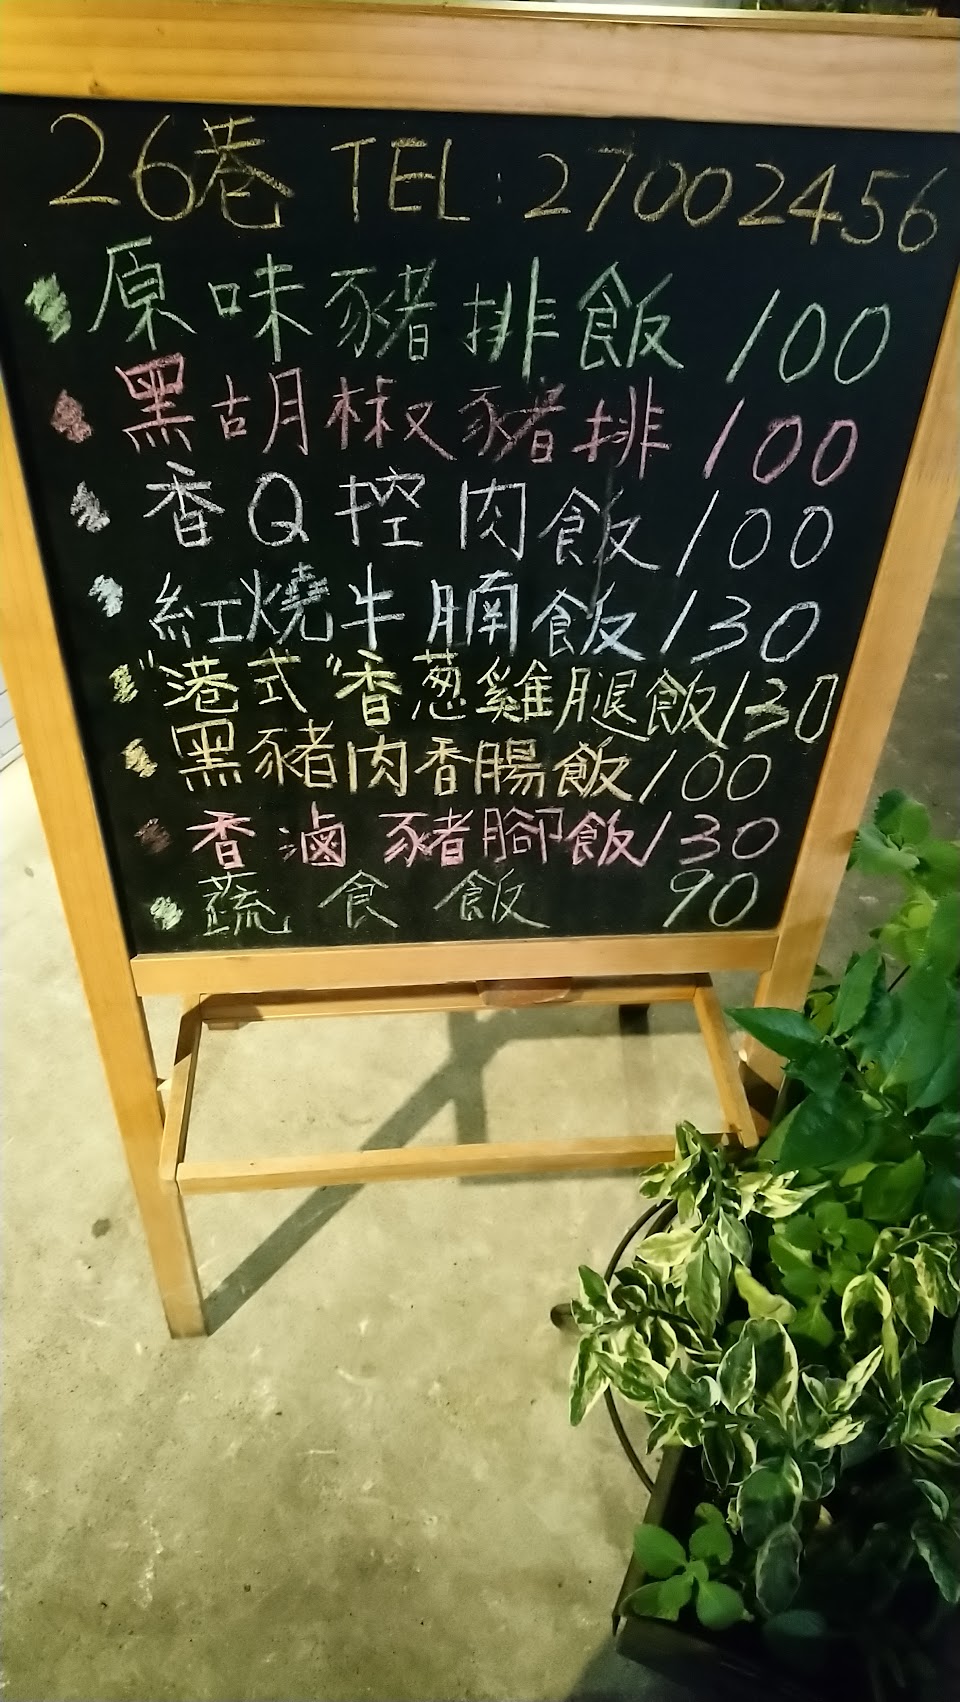 26巷 TEL:27002456
原味豬排飯 100
黑胡椒豬排 100
香Q控肉飯 100
紅燒牛腩飯 130
"港式"香葱雞腿飯 130
黑豬肉香腸飯 100
香滷豬腳飯 130
蔬食飯 90